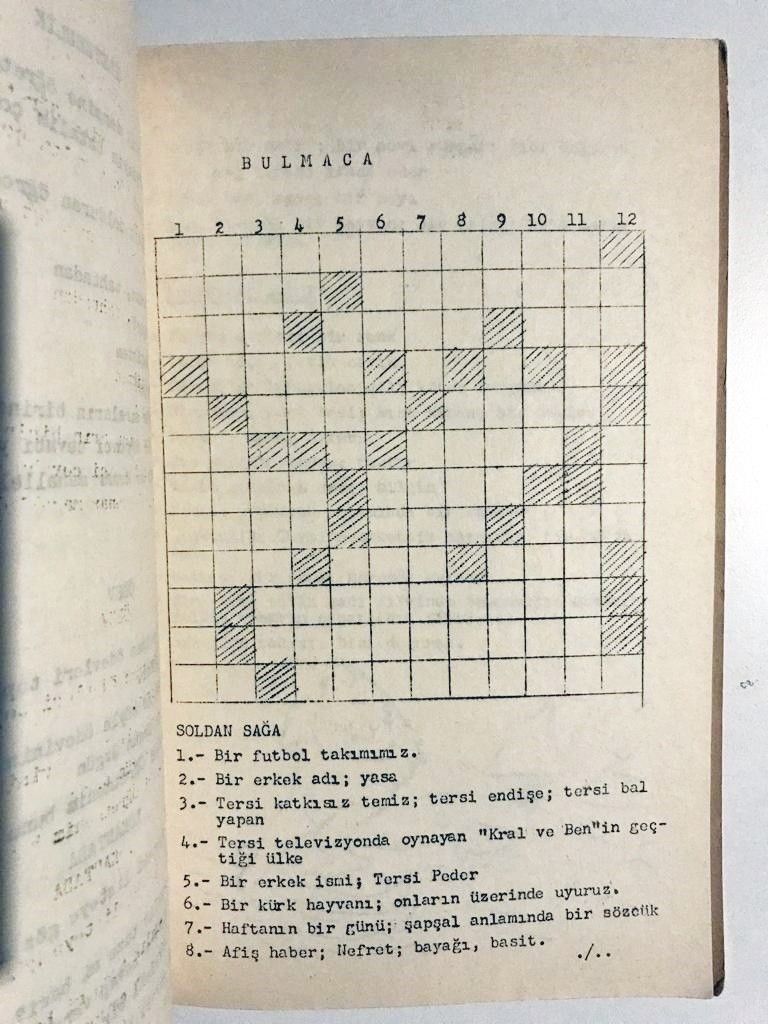 BULMACA
1 2 3 4 5 6 7 8 9 10 11 12
SOLDAN SAĞA
1.- Bir futbol takımımız.
2.- Bir erkek adı; yasa
3.- Tersi katkısız temiz; tersi endişe; tersi bal
yapan
4.- Tersi televizyonda oynayan "Kral ve Ben"in geç-
tiği ülke
5.- Bir erkek ismi; Tersi Peder
6.- Bir kürk hayvanı; onların üzerinde uyuruz.
7.- Haftanın bir günü; şapşal anlamında bir sözcük
8.- Afiş haber; Nefret; bayağı, basit.
./..